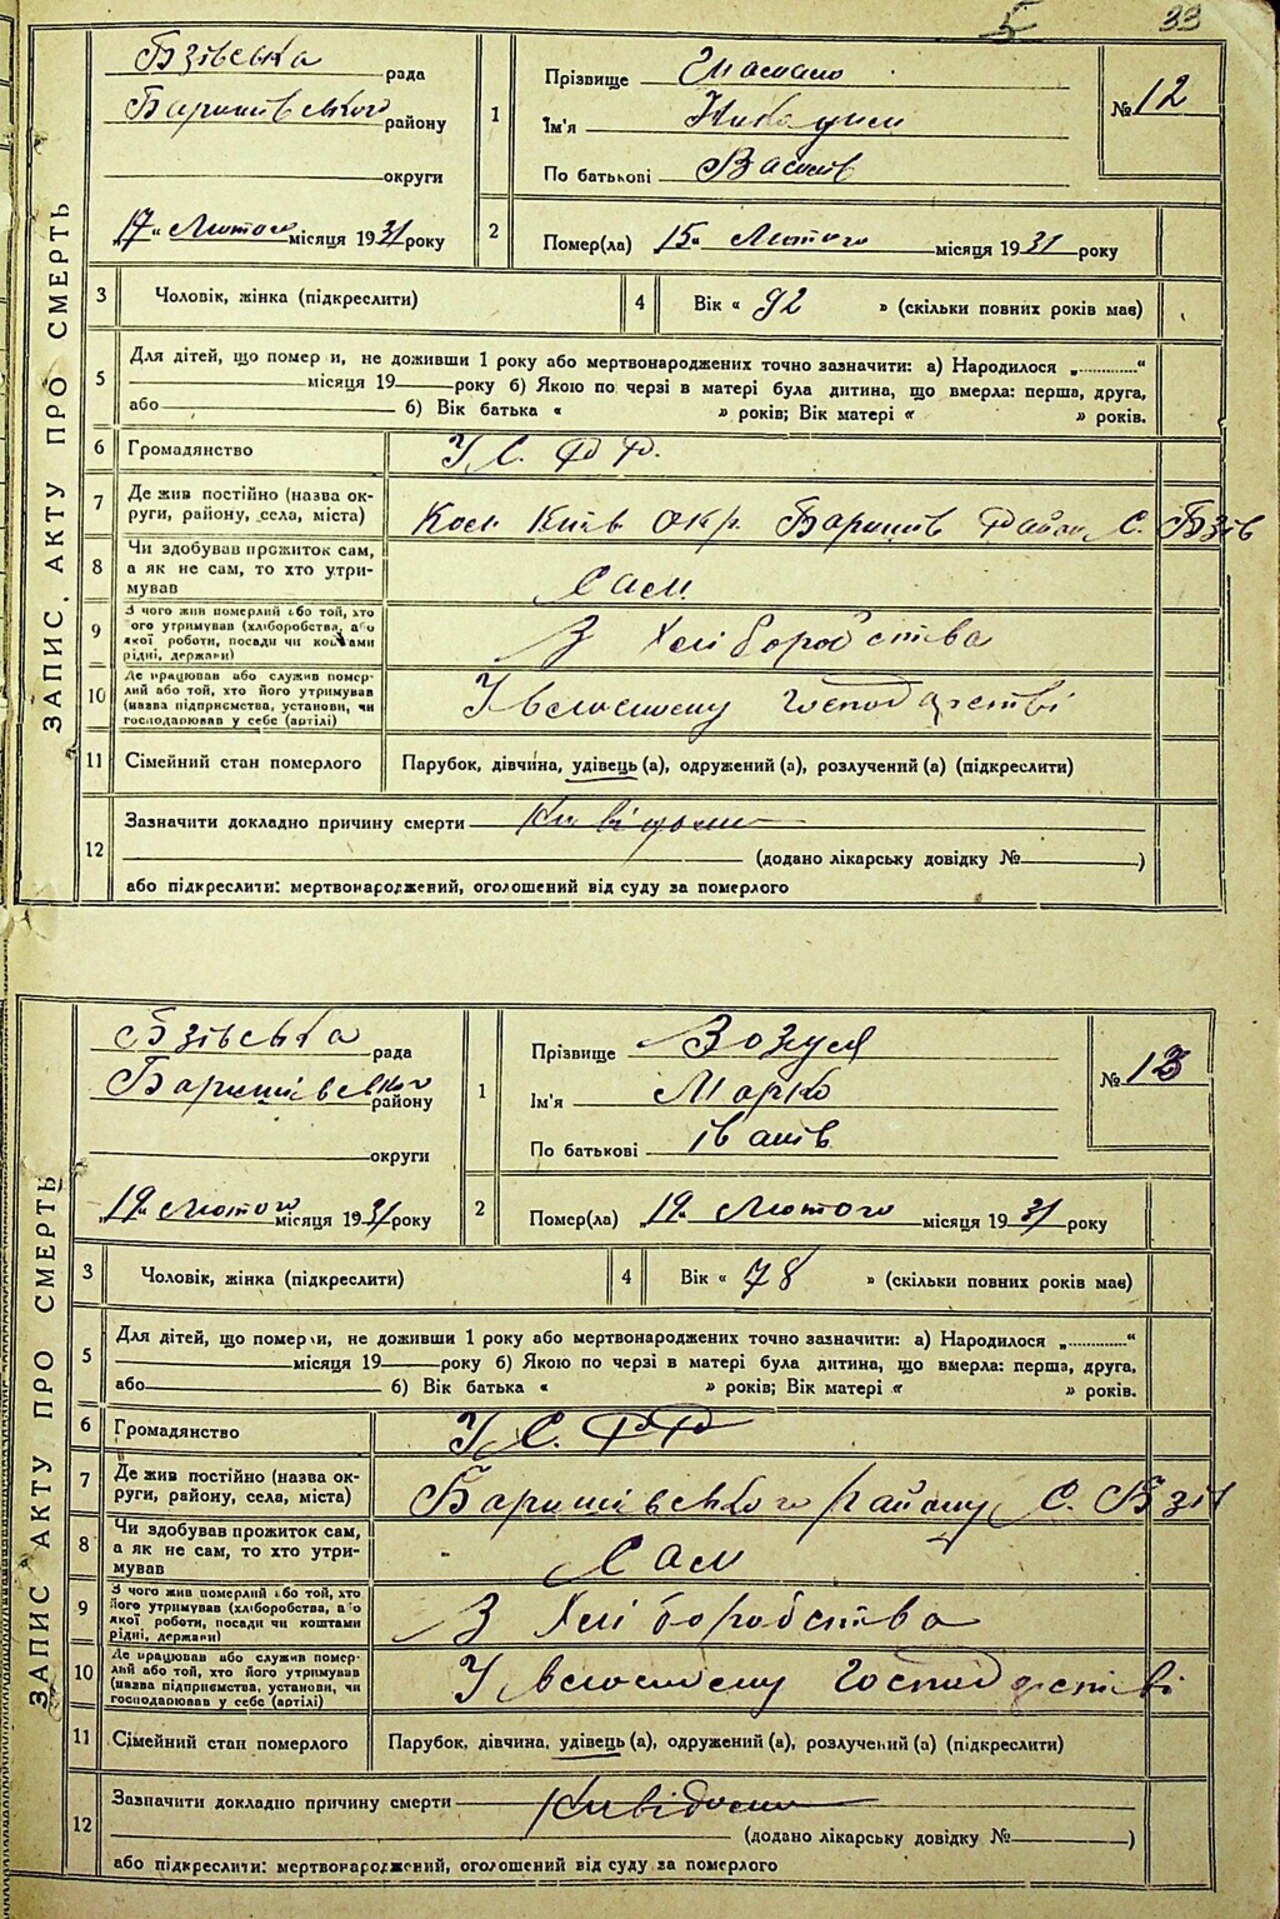 5 33
ЗАПИС АКТУ ПРО СМЕРТЬ
Бзівська рада
Баришівського району
округи
„17" Лютого місяця 1931 року
1
Прізвище
Ім'я
По батькові Васил​ів
№ 12
2
Помер(ла) 15" Лютого місяця 1931 року
3 Чоловік, жінка (підкреслити)
4 Вік « 92 » (скільки повних років має)
5
Для дітей, що помер и, не доживши 1 року або мертвонароджених точно зазначити: а) Народилося „............"
місяця 19 року б) Якою по черзі в матері була дитина, що вмерла: перша, друга,
або б) Вік батька « » років; Вік матері « » років.
6 Громадянство У.С.Р.Р.
7
Де жив постійно (назва ок-
руги, району, села, міста)
Кол. Київ Окр. Баришів Район С. Бзів
8
Чи здобував прожиток сам,
а як не сам, то хто утри-
мував
Сам
9
З чого жив померлий або той, хто
ого утримував (хліборобства, або
якої роботи, посади чи коштами
рідні, держави)
З Хліборобства
10
Де працював або служив помер-
лий або той, хто його утримував
(назва підприємства, установи, чи
господарював у себе (артілі)
У власному господарстві
11 Сімейний стан померлого
Парубок, дівчина, удівець (а), одружений (а), розлучений (а) (підкреслити)
12
Зазначити докладно причину смерти Невідомо
(додано лікарську довідку № )
або підкреслити: мертвонароджений, оголошений від суду за померлого
ЗАПИС АКТУ ПРО СМЕРТЬ
Бзівська рада
Баришівського району
округи
„19" Лютого місяця 1931 року
1
Прізвище Зозуля
Ім'я Марко
По батькові Іванів
№ 13
2
Помер(ла) „19" Лютого місяця 1931 року
3 Чоловік, жінка (підкреслити)
4 Вік « 78 » (скільки повних років має)
5
Для дітей, що померли, не доживши 1 року або мертвонароджених точно зазначити: а) Народилося „............"
місяця 19 року б) Якою по черзі в матері була дитина, що вмерла: перша, друга,
або б) Вік батька « » років; Вік матері « » років.
6 Громадянство У.С.Р.Р.
7
Де жив постійно (назва ок-
руги, району, села, міста)
Баришівського району С. Бзів
8
Чи здобував прожиток сам,
а як не сам, то хто утри-
мував
Сам
9
З чого жив померлий або той, хто
його утримував (хліборобства, або
якої роботи, посади чи коштами
рідні, держави)
З Хліборобства
10
Де працював або служив помер-
лий або той, хто його утримував
(назва підприємства, установи, чи
господарював у себе (артілі)
У власному господарстві
11 Сімейний стан померлого
Парубок, дівчина, удівець (а), одружений (а), розлучений (а) (підкреслити)
12
Зазначити докладно причину смерти Невідомо
(додано лікарську довідку № )
або підкреслити: мертвонароджений, оголошений від суду за померлого